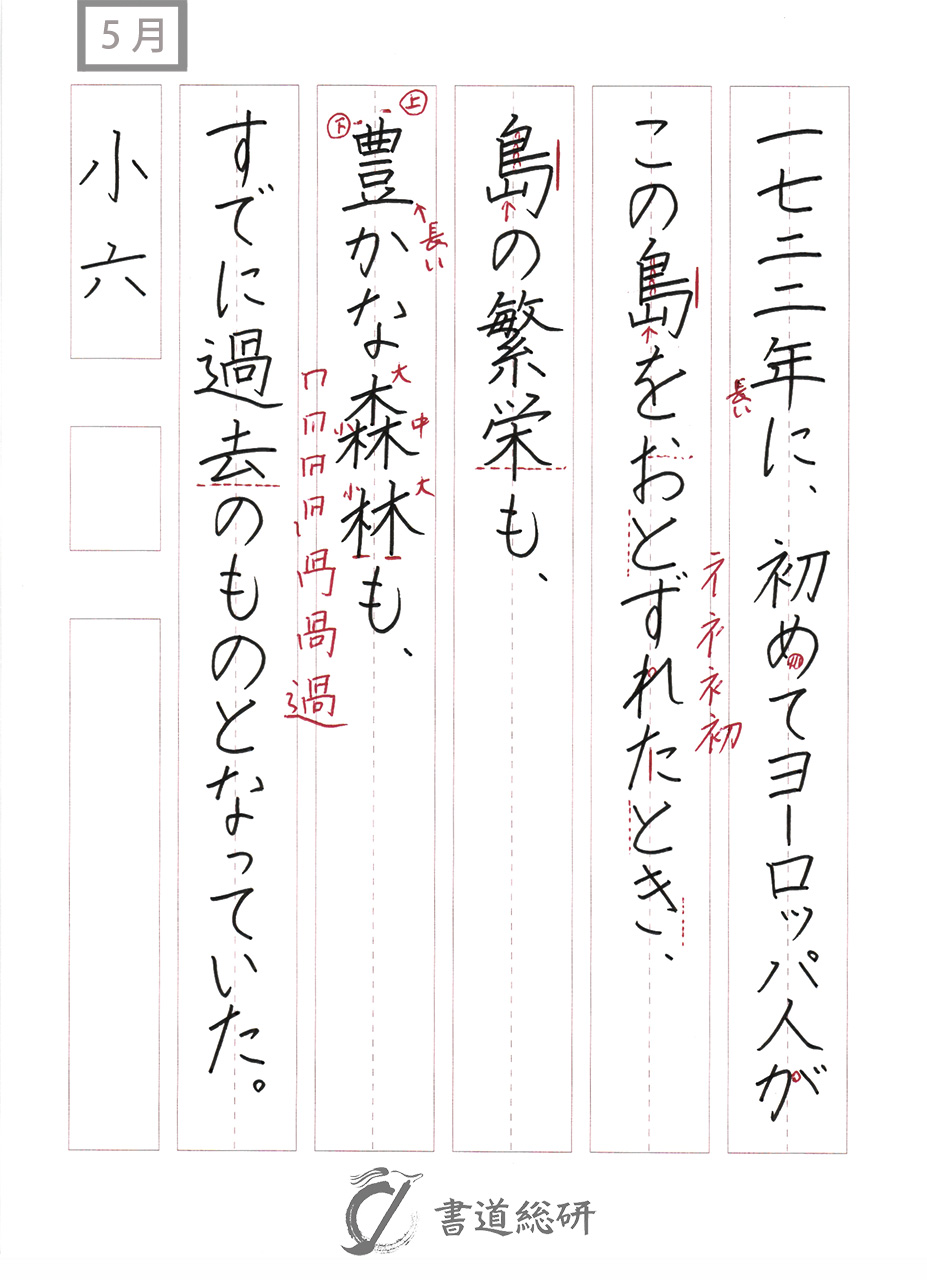 5月
一七二二年に、初めてヨーロッパ人が
長い
この島をおとずれたとき、
ネ ネ ネ 初
島の繁栄も、
豊かな森林も、
上
下
長い
大
小 中
小 大
すでに過去のものとなっていた。
過
小六
書道総研